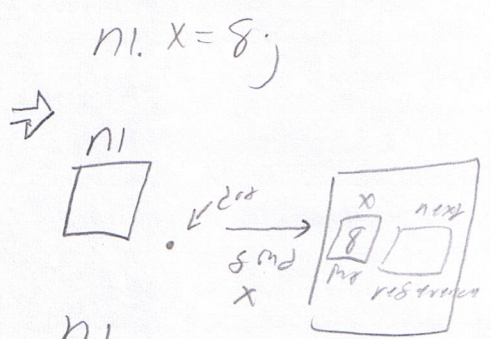 n1. x = 8;
n1
dot
find
x
x next
8
int reference
n1